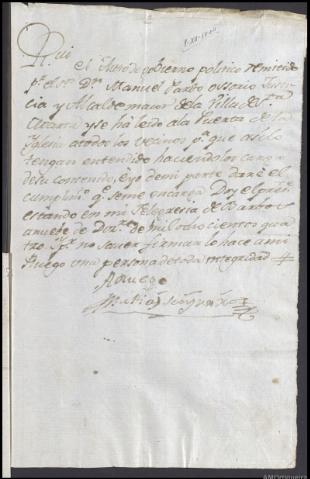 Reciui
el Auto de gobierno politico remitido
pr. el Sr. Dn. Manuel Pardo ossorio Justi-
cia y Alcalde maior de la Villa de Sta.
Marta y se há leido ala Puerta de la
Iglesia atodos los vecinos pa. que asilo
tengan entendido haciendolos cargo
desu contenido, è yo demi parte daré el
cumplimto. qe. seme encarga Doy el preste.
estando en mi Felegresia de
anuebe de Dizre. de mil ochocientos qua
tro Pr. no saver firmar lo hace ami
Ruego una persona detoda integridad
Aruego
Matias